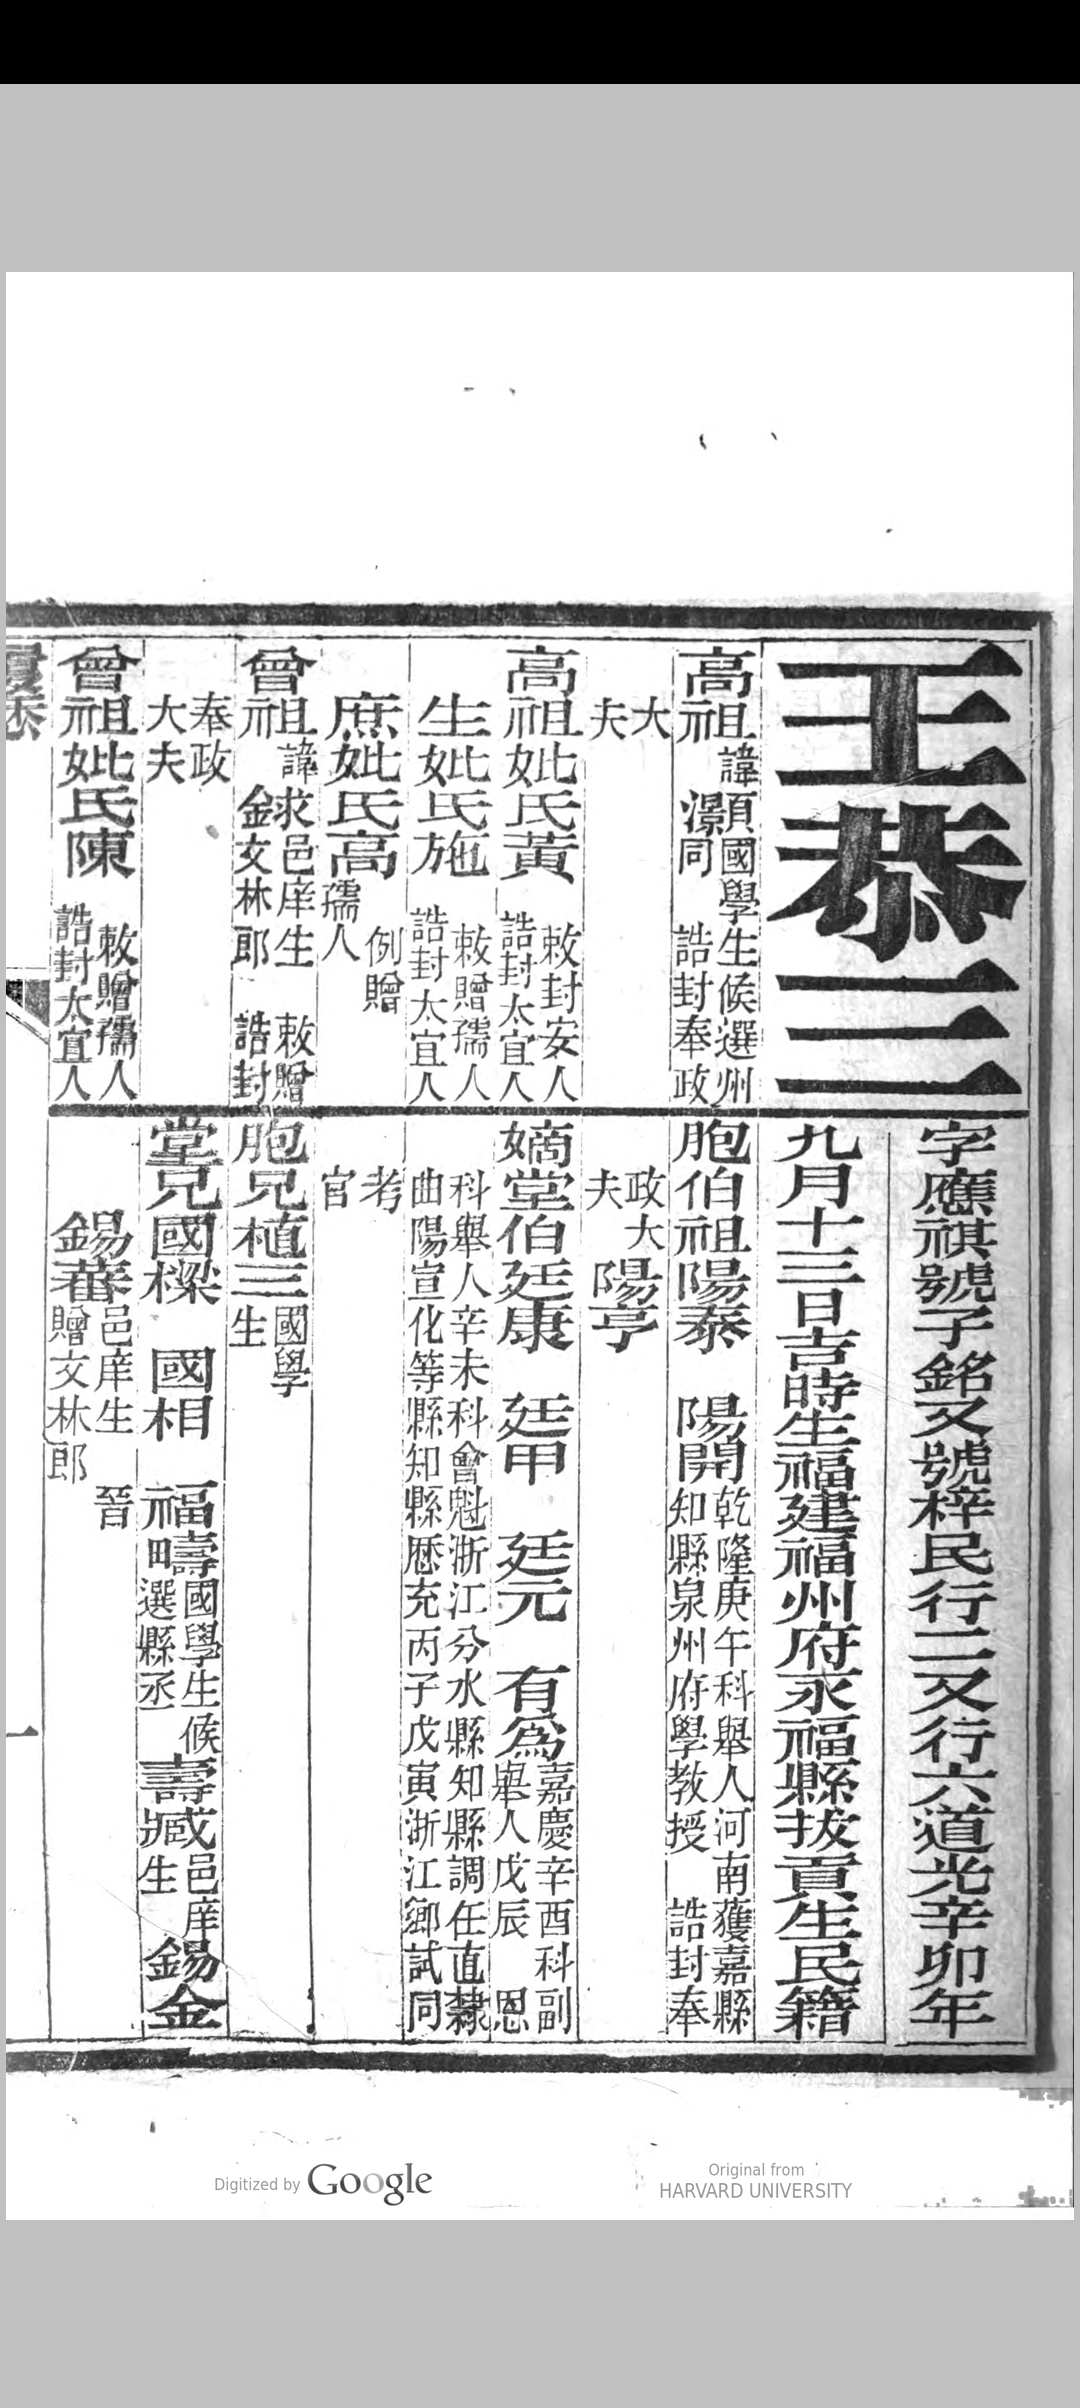 王恭三
字應祺號子銘又號梓民行二又行六道光辛卯年
九月十三日吉時生福建福州府永福縣拔貢生民籍
高祖諱頊國學生候選州
同 誥封奉政
大
夫
高祖妣氏黃 敕封安人
誥封太宜人
生妣氏施 敕贈孺人
誥封太宜人
庶妣氏高 例贈
孺人
曾祖諱求邑庠生 敕贈
金文林郎 誥封
奉政
大夫
曾祖妣氏陳 敕贈孺人
誥封太宜人
胞伯祖陽泰 陽開 乾隆庚午科舉人河南獲嘉縣
知縣泉州府學教授 誥封奉
政大
夫 陽亭
嫡堂伯廷康 廷甲 廷元 有為 嘉慶辛酉科副
舉人戊辰 恩
科舉人辛未科會魁浙江分水縣知縣調任直隸
曲陽宣化等縣知縣歷充丙子戊寅浙江鄉試同
考
官
胞兄植三 國學
生
堂兄國樑 國相 福壽 國學生候
福疇選縣丞 壽臧 邑庠
生 錫金
錫蕃 邑庠生 晉
贈文林郎
履歷
一
Digitized by Google
Original from
HARVARD UNIVERSITY